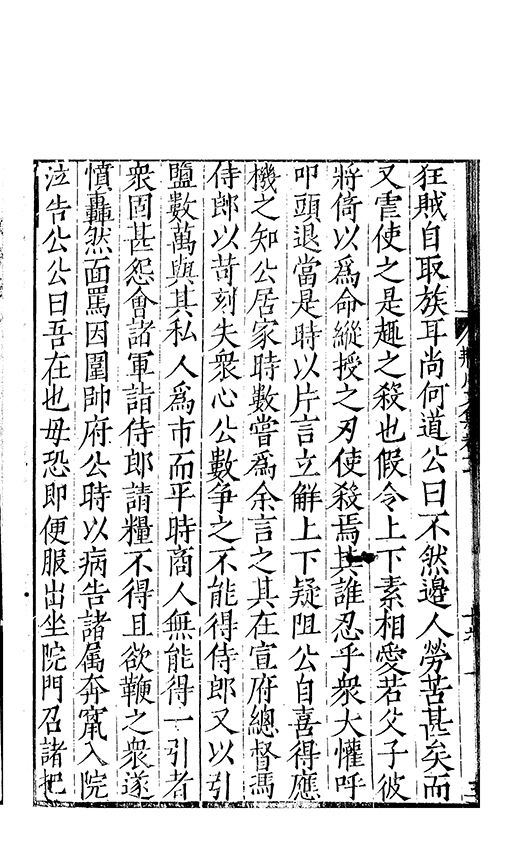 狂賊自取族耳尚何道公曰不然邊人勞苦甚矣而
又虐使之是趣之殺也假令上下素相愛若父子彼
將倚以爲命縱授之刃使殺焉其誰忍乎衆大懽呼
叩頭退當是時以片言立解上下疑阻公自喜得應
機之知公居家時數嘗爲余言之其在宣府總督馮
侍郎以苛刻失衆心公數爭之不能得侍郎又以引
鹽數萬與其私人爲市而平時商人無能得一引者
衆固甚怨會諸軍詣侍郎請糧不得且欲鞭之衆遂
憤轟然面罵因圍帥府公時以病告諸属奔竄入院
泣告公公曰吾在也毋恐即便服出坐院門召諸把